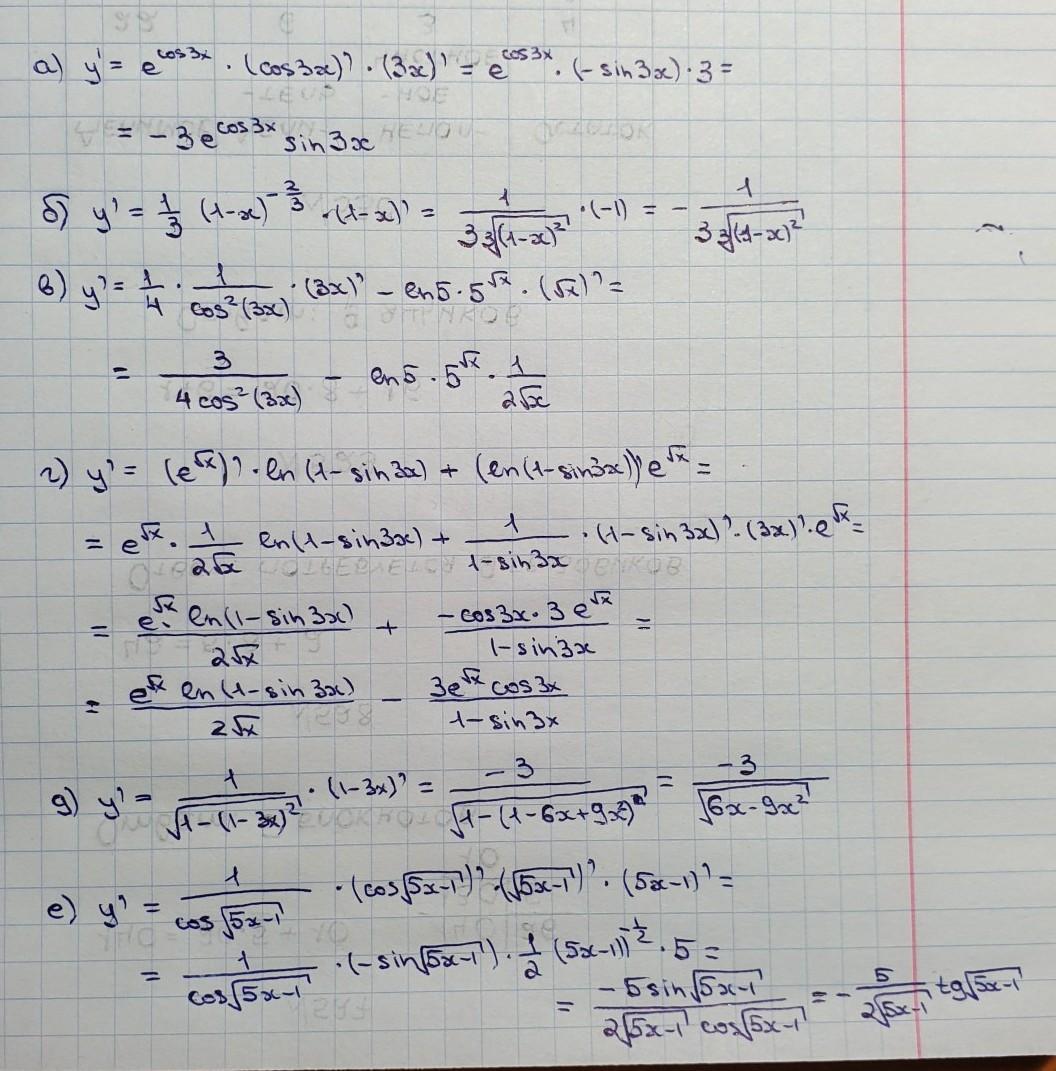 а) y' = e^cos3x · (cos3x)' · (3x)' = e^cos3x · (-sin3x) · 3 =
= -3e^cos3x sin3x
б) y' = 1/3 (1-x)^(-2/3) · (1-x)' = 1/(3∛(1-x)²) · (-1) = - 1/(3∛(1-x)²)
в) y' = 1/4 · 1/cos²(3x) · (3x)' - ln5 · 5^√x · (√x)' =
= 3/(4cos²(3x)) - ln5 · 5^√x · 1/(2√x)
г) y' = (e^√x)' · ln(1-sin3x) + (ln(1-sin3x))' e^√x =
= e^√x · 1/(2√x) ln(1-sin3x) + 1/(1-sin3x) · (1-sin3x)' · (3x)' · e^√x =
= (e^√x · ln(1-sin3x))/(2√x) + (-cos3x · 3e^√x)/(1-sin3x) =
= (e^√x ln(1-sin3x))/(2√x) - (3e^√x cos3x)/(1-sin3x)
д) y' = 1/√(1-(1-3x)²) · (1-3x)' = -3/√(1-(1-6x+9x²)) = -3/√(6x-9x²)
е) y' = 1/cos√(5x-1) · (cos√(5x-1))' · (√(5x-1))' · (5x-1)' =
= 1/cos√(5x-1) · (-sin√(5x-1)) · 1/2 (5x-1)^(-1/2) · 5 =
= (-5sin√(5x-1))/(2√(5x-1) cos√(5x-1)) = - 5/(2√(5x-1)) tg√(5x-1)